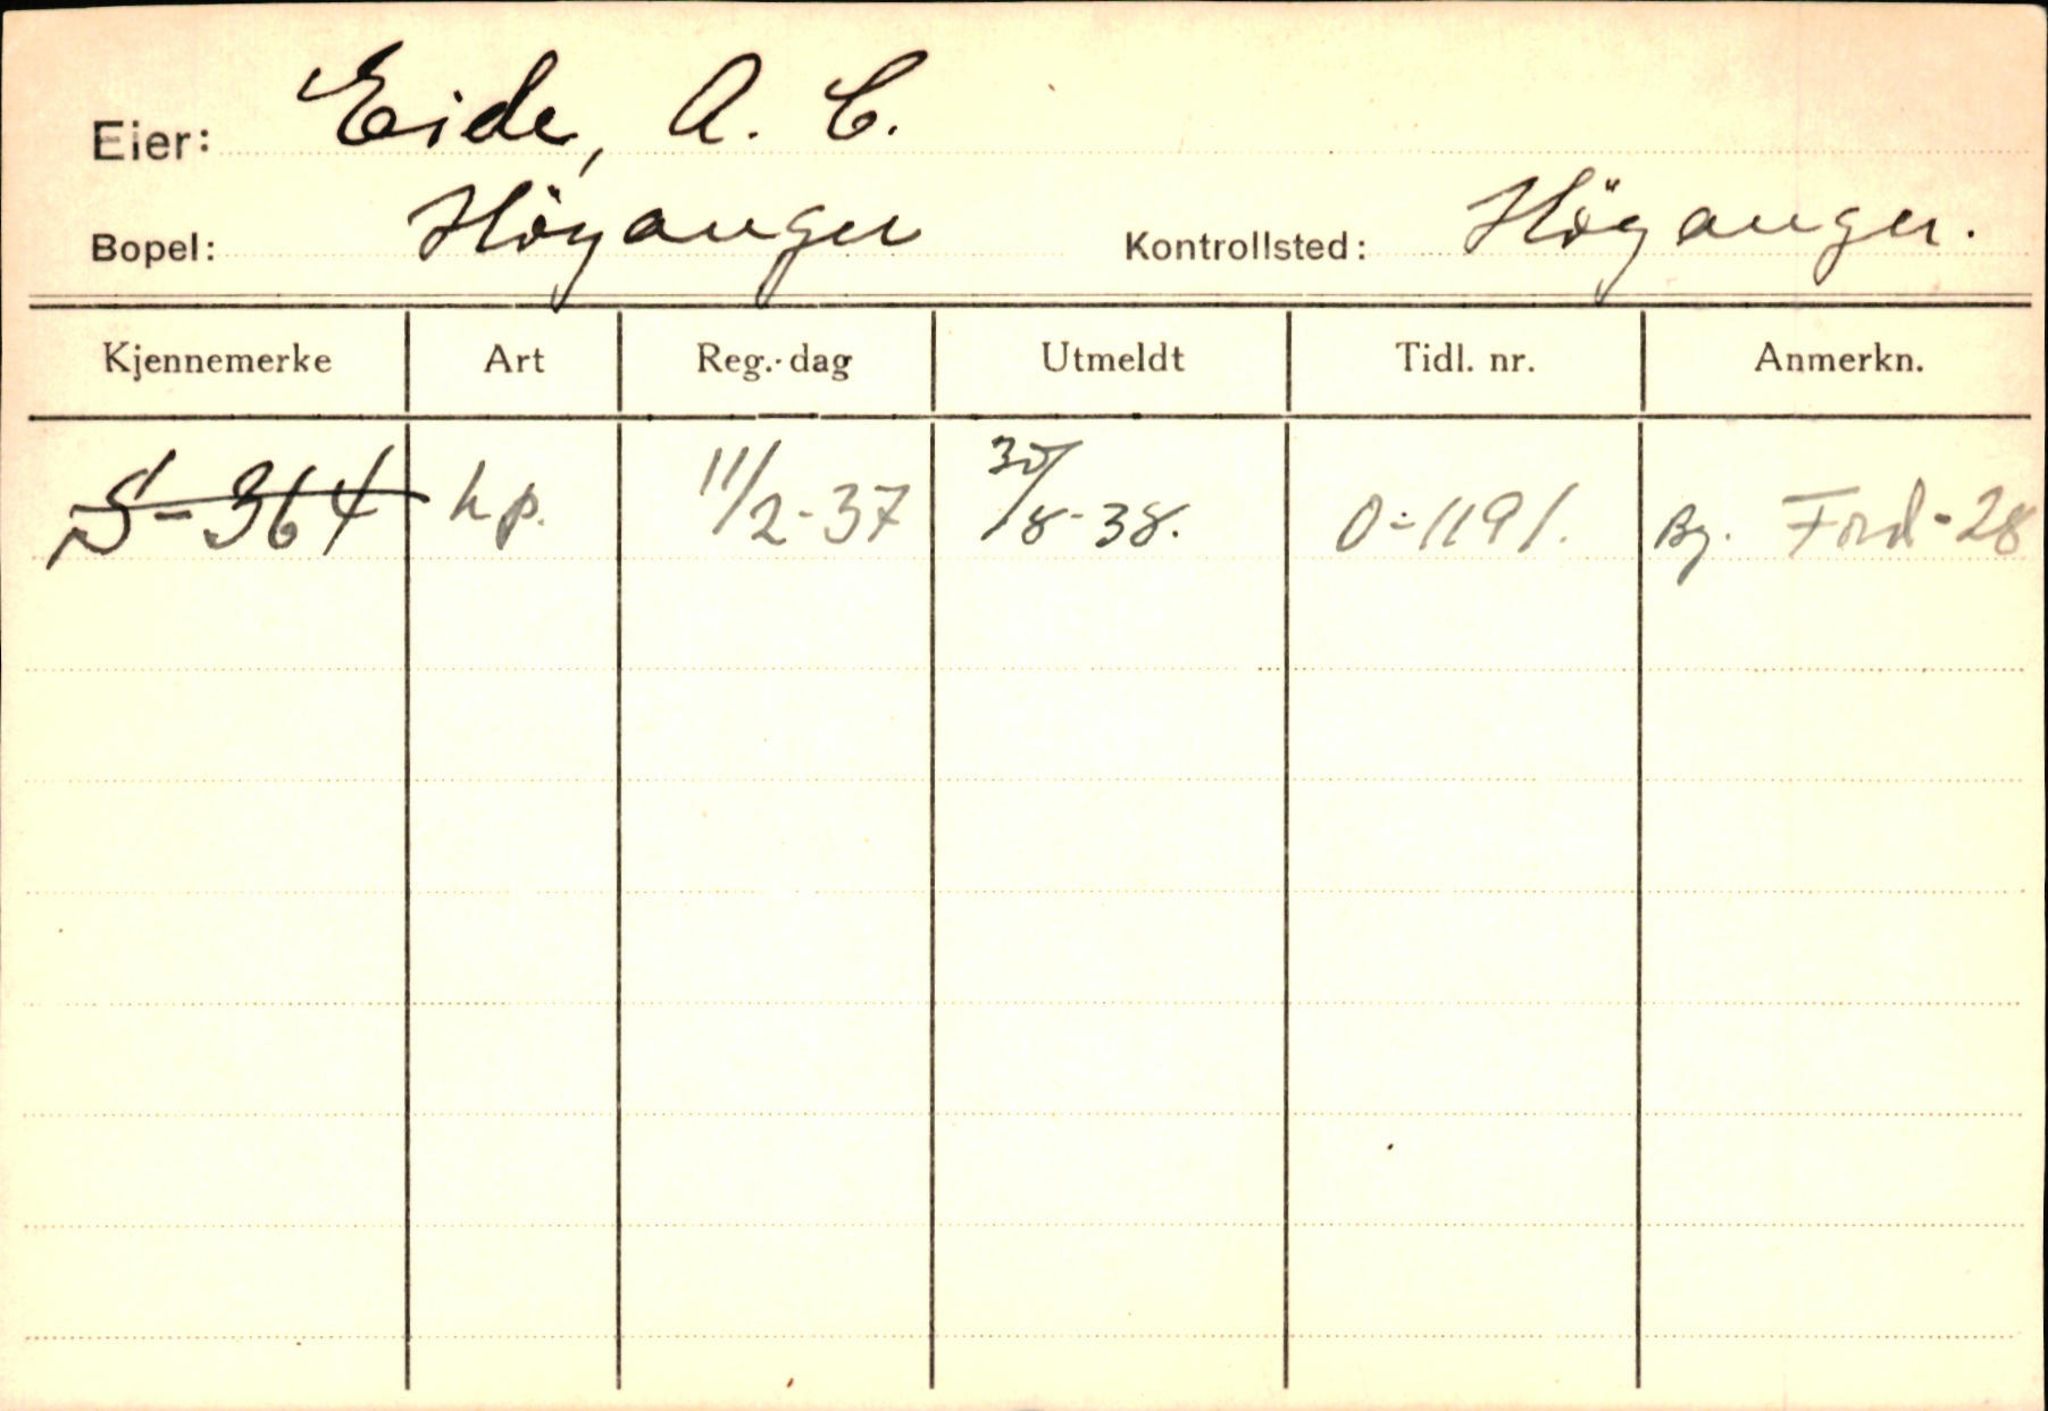 Eier: Eide, A. C.
Bopel: Höyanger Kontrollsted: Höyanger.
Kjennemerke Art Reg.-dag Utmeldt Tidl. nr. Anmerkn.
S-364 hp. 11/2-37 30/8-38. O-1191. By. Ford-28